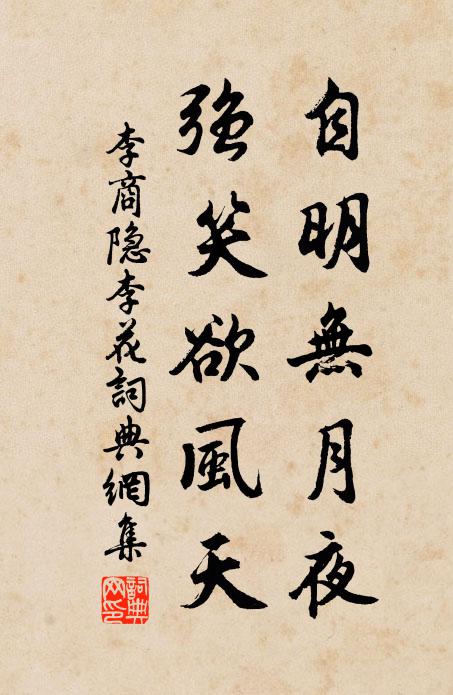 自明無月夜
強笑欲風天
李商隐李花詞典網集
詞典網印